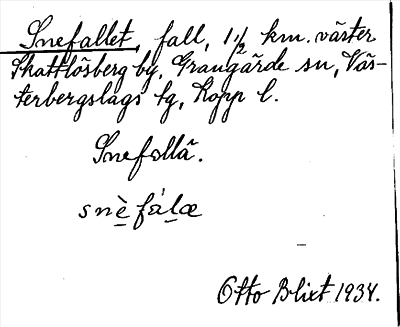 Snefallet, fall, 1 1/2 km. väster
Skattlösberg by, Grangärde sn, Väs-
terbergslags tg, Kopp l.
Snefallä.
snè fálæ
Otto Blixt 1934.